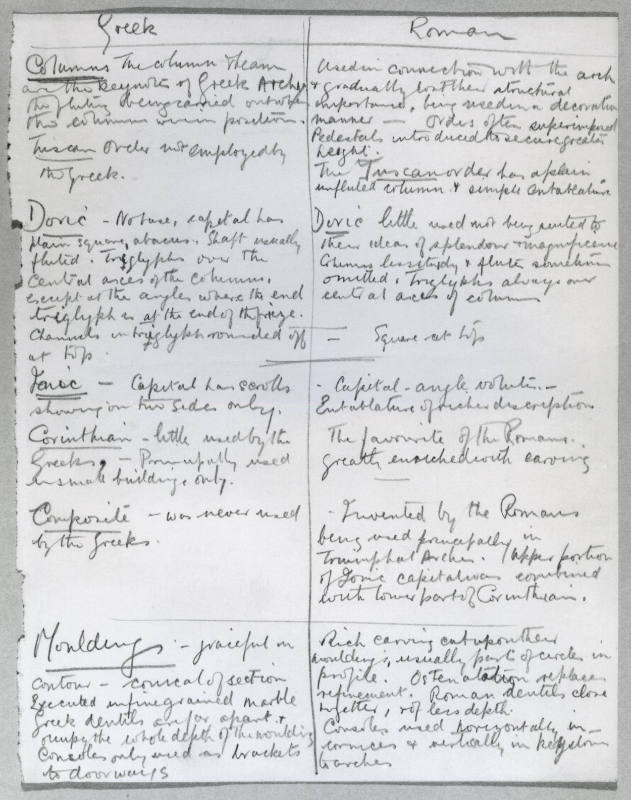 Greek
Columns The column & beam
are the keynote of Greek Archre
the fluting being carried out with
the column when in position.
Tuscan Order not employed by
the Greek.
Doric - No base, capital has
plain square abacus. Shaft usually
fluted. Triglyphs over the
central axes of the columns,
except at the angles where the end
triglyph is at the end of the frieze.
Channels in triglyph rounded off
at top.
Ionic - Capital has scrolls
showing on two sides only.
Corinthian - little used by the
Greeks, - Principally used
in small buildings only.
Composite - was never used
by the Greeks.
Mouldings - graceful in
contour - conical of section
Executed in fine grained marble
Greek dentils are far apart &
occupy the whole depth of the moulding
Consoles only used as brackets
to doorways
Roman
Used in connection with the arch
& gradually lost their structural
importance, being used in a decorative
manner - Orders often superimposed
Pedestals introduced to secure greater
height.
The Tuscan order has a plain
unfluted column & simple entablature
Doric little used not being suited to
their ideas of splendour & magnificence
Columns less sturdy & flutes sometimes
omitted. Triglyphs always over
central axes of columns
- Square at top
- Capital - angle volutes. -
Entablature of richer description
The favourite of the Romans.
greatly enriched with carving
- Invented by the Romans
being used principally in
Triumphal Arches. Upper portion
of Ionic capital was combined
with lower part of Corinthian.
Rich carving cut upon their
mouldings, usually parts of circles in
profile. Ostentation replaces
refinement. Roman dentils close
together, & of less depth.
Consoles used horizontally in
cornices & vertically in keystones
to arches